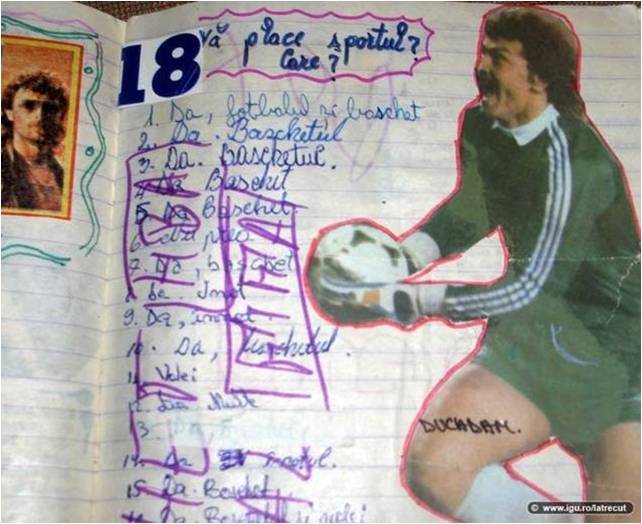 18
Vă place sportul?
Care?
1. Da, fotbalul si baschet
2. Da. Baschetul
3. Da. Baschetul.
4. Da Baschet
5. Da Baschet.
6.
7. Da, baschet
8. Da. Inot
9. Da, innot.
10. Da, baschetul.
11. Volei
12. Da. Multe
3. Da,
14. Da inotul.
15. Da. Baschet
Da. Baschetul si volei
DUCADAM.
www.igu.ro/latrecut